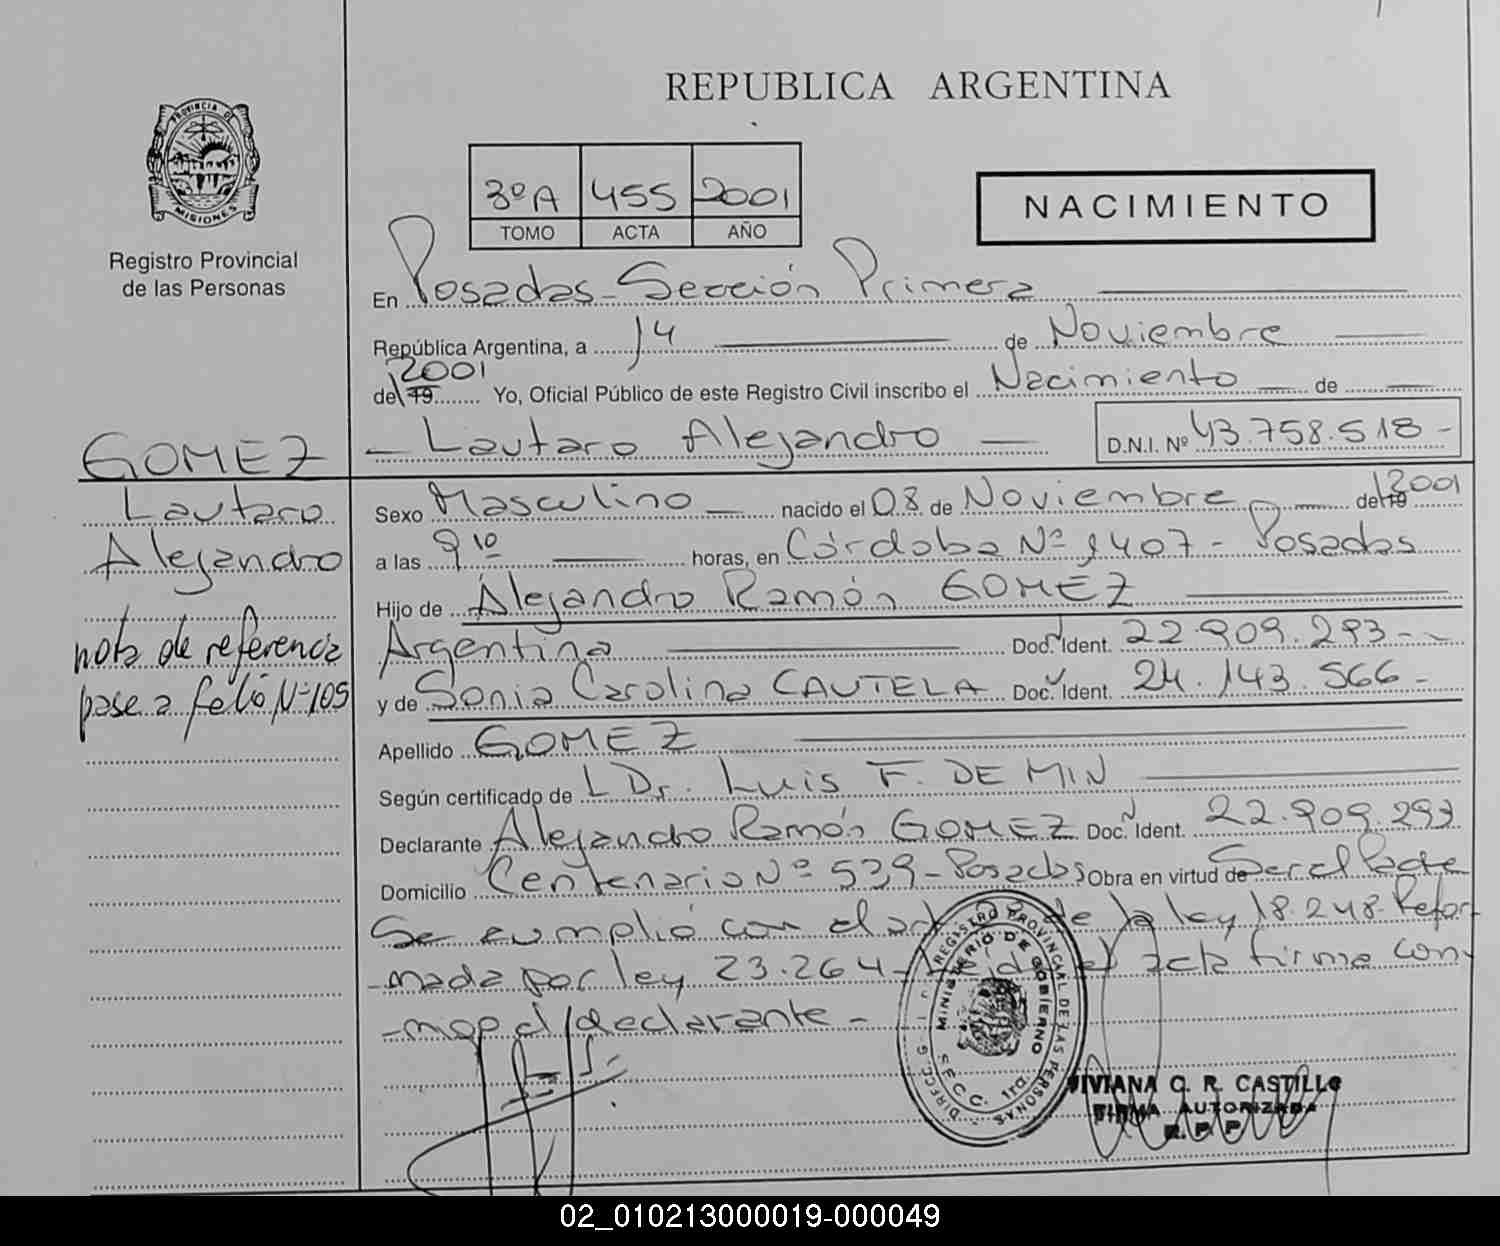 REPUBLICA ARGENTINA
PROVINCIA DE
MISIONES
Registro Provincial
de las Personas
3º A 455 2001
TOMO ACTA AÑO
NACIMIENTO
En Posadas - Sección Primera
República Argentina, a 14 de Noviembre
2001
de 19 Yo, Oficial Público de este Registro Civil inscribo el Nacimiento de
Lautaro Alejandro D.N.I. Nº 43.758.518-
GOMEZ
Lautaro
Alejandro
nota de referencia
pase a folio Nº 105
Sexo Masculino nacido el 08 de Noviembre de 19 2001
a las 9 10 horas, en Córdoba Nº 1407 - Posadas
Hijo de Alejandro Ramón GOMEZ
Argentina Doc. Ident. 22.909.293--
y de Sonia Carolina CAUTELA Doc. Ident. 24.143.566-
Apellido GOMEZ
Según certificado de L Dr. Luis F. DE MIN
Declarante Alejandro Ramón GOMEZ Doc. Ident. 22.909.293
Domicilio Centenario Nº 539 - Posadas Obra en virtud de ser el Padre
Se cumplió con el art de la ley 18.248. Refor-
-mada por ley 23.264- el acta firma con-
-migo el declarante-
REGISTRO PROVINCIAL DE LAS PERSONAS
MINISTERIO DE GOBIERNO
SECC. 1ra.
VIVIANA C. R. CASTILLO
FIRMA AUTORIZADA
R. P. P.
02_010213000019-000049